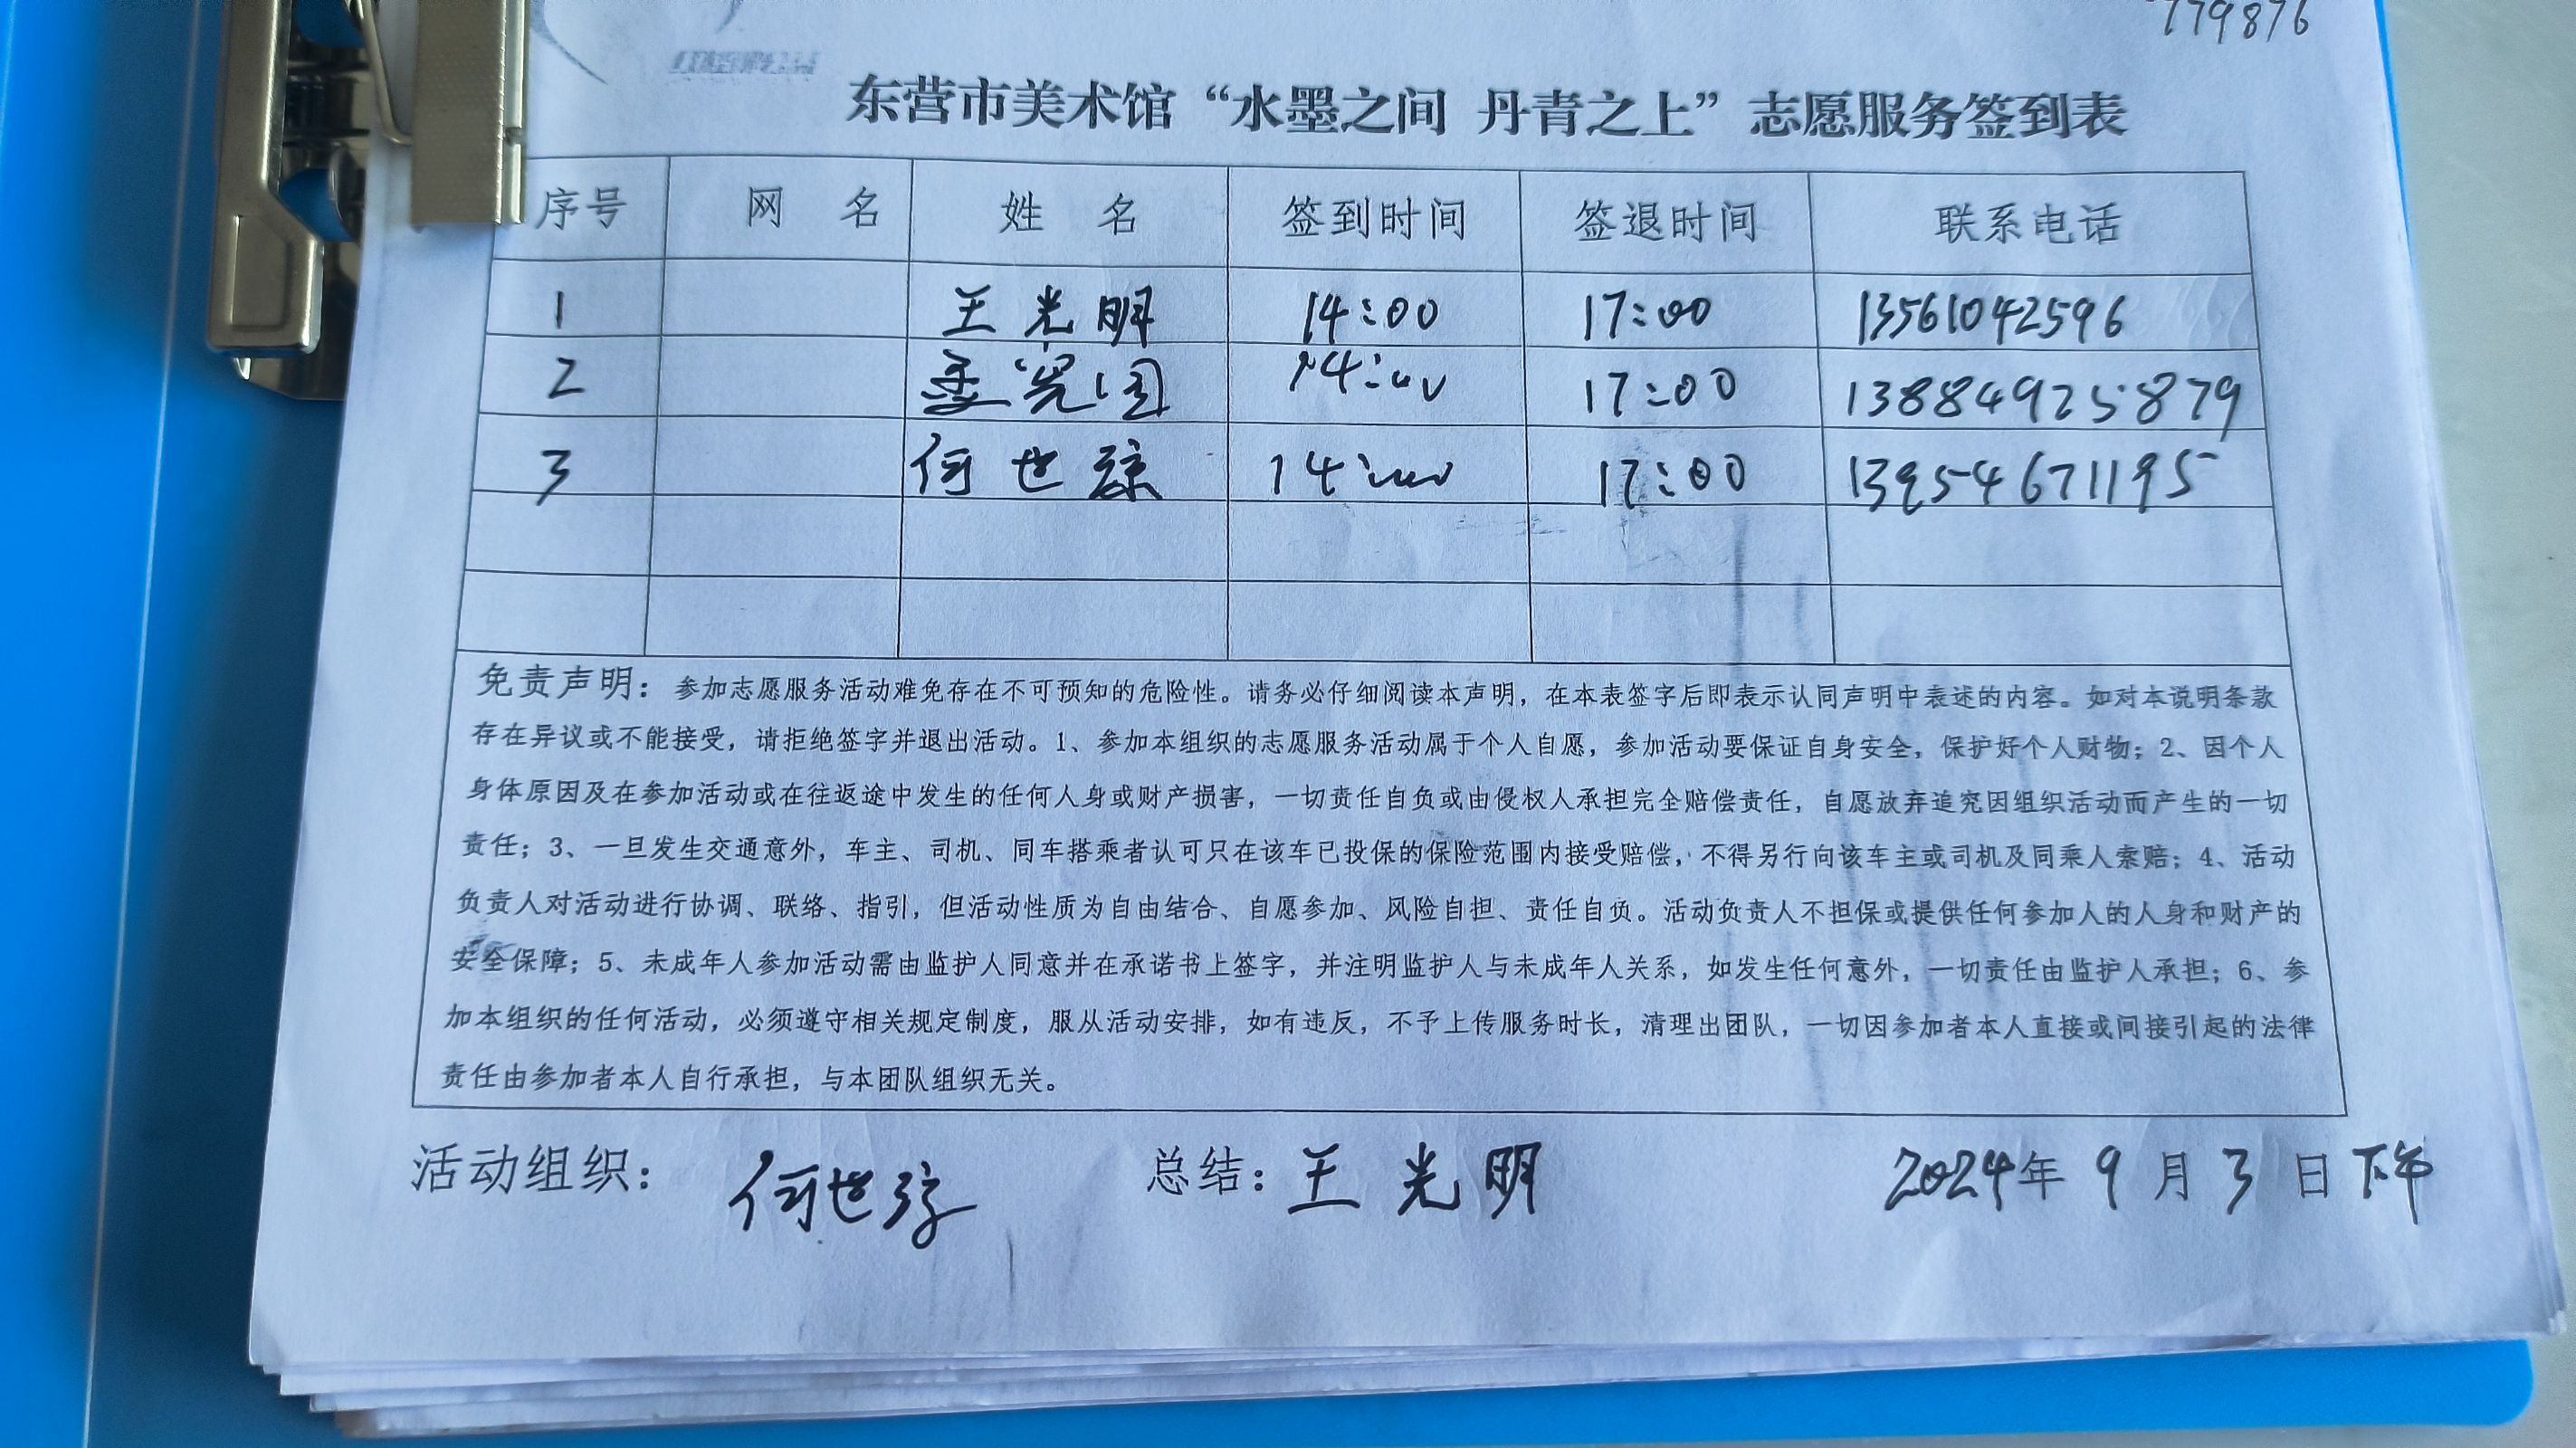 779876
东营市美术馆“水墨之间 丹青之上”志愿服务签到表
序号 网 名 姓 名 签到时间 签退时间 联系电话
1 王光明 14:00 17:00 13561042596
2 14:00 17:00 13884925879
3 何世 14:00 17:00 13954671195
免责声明：参加志愿服务活动难免存在不可预知的危险性。请务必仔细阅读本声明，在本表签字后即表示认同声明中表述的内容。如对本说明条款
存在异议或不能接受，请拒绝签字并退出活动。1、参加本组织的志愿服务活动属于个人自愿，参加活动要保证自身安全，保护好个人财物；2、因个人
身体原因及在参加活动或在往返途中发生的任何人身或财产损害，一切责任自负或由侵权人承担完全赔偿责任，自愿放弃追究因组织活动而产生的一切
责任；3、一旦发生交通意外，车主、司机、同车搭乘者认可只在该车已投保的保险范围内接受赔偿，不得另行向该车主或司机及同乘人索赔；4、活动
负责人对活动进行协调、联络、指引，但活动性质为自由结合、自愿参加、风险自担、责任自负。活动负责人不担保或提供任何参加人的人身和财产的
安全保障；5、未成年人参加活动需由监护人同意并在承诺书上签字，并注明监护人与未成年人关系，如发生任何意外，一切责任由监护人承担；6、参
加本组织的任何活动，必须遵守相关规定制度，服从活动安排，如有违反，不予上传服务时长，清理出团队，一切因参加者本人直接或间接引起的法律
责任由参加者本人自行承担，与本团队组织无关。
活动组织： 何世 总结：王光明 2024年9月3日下午